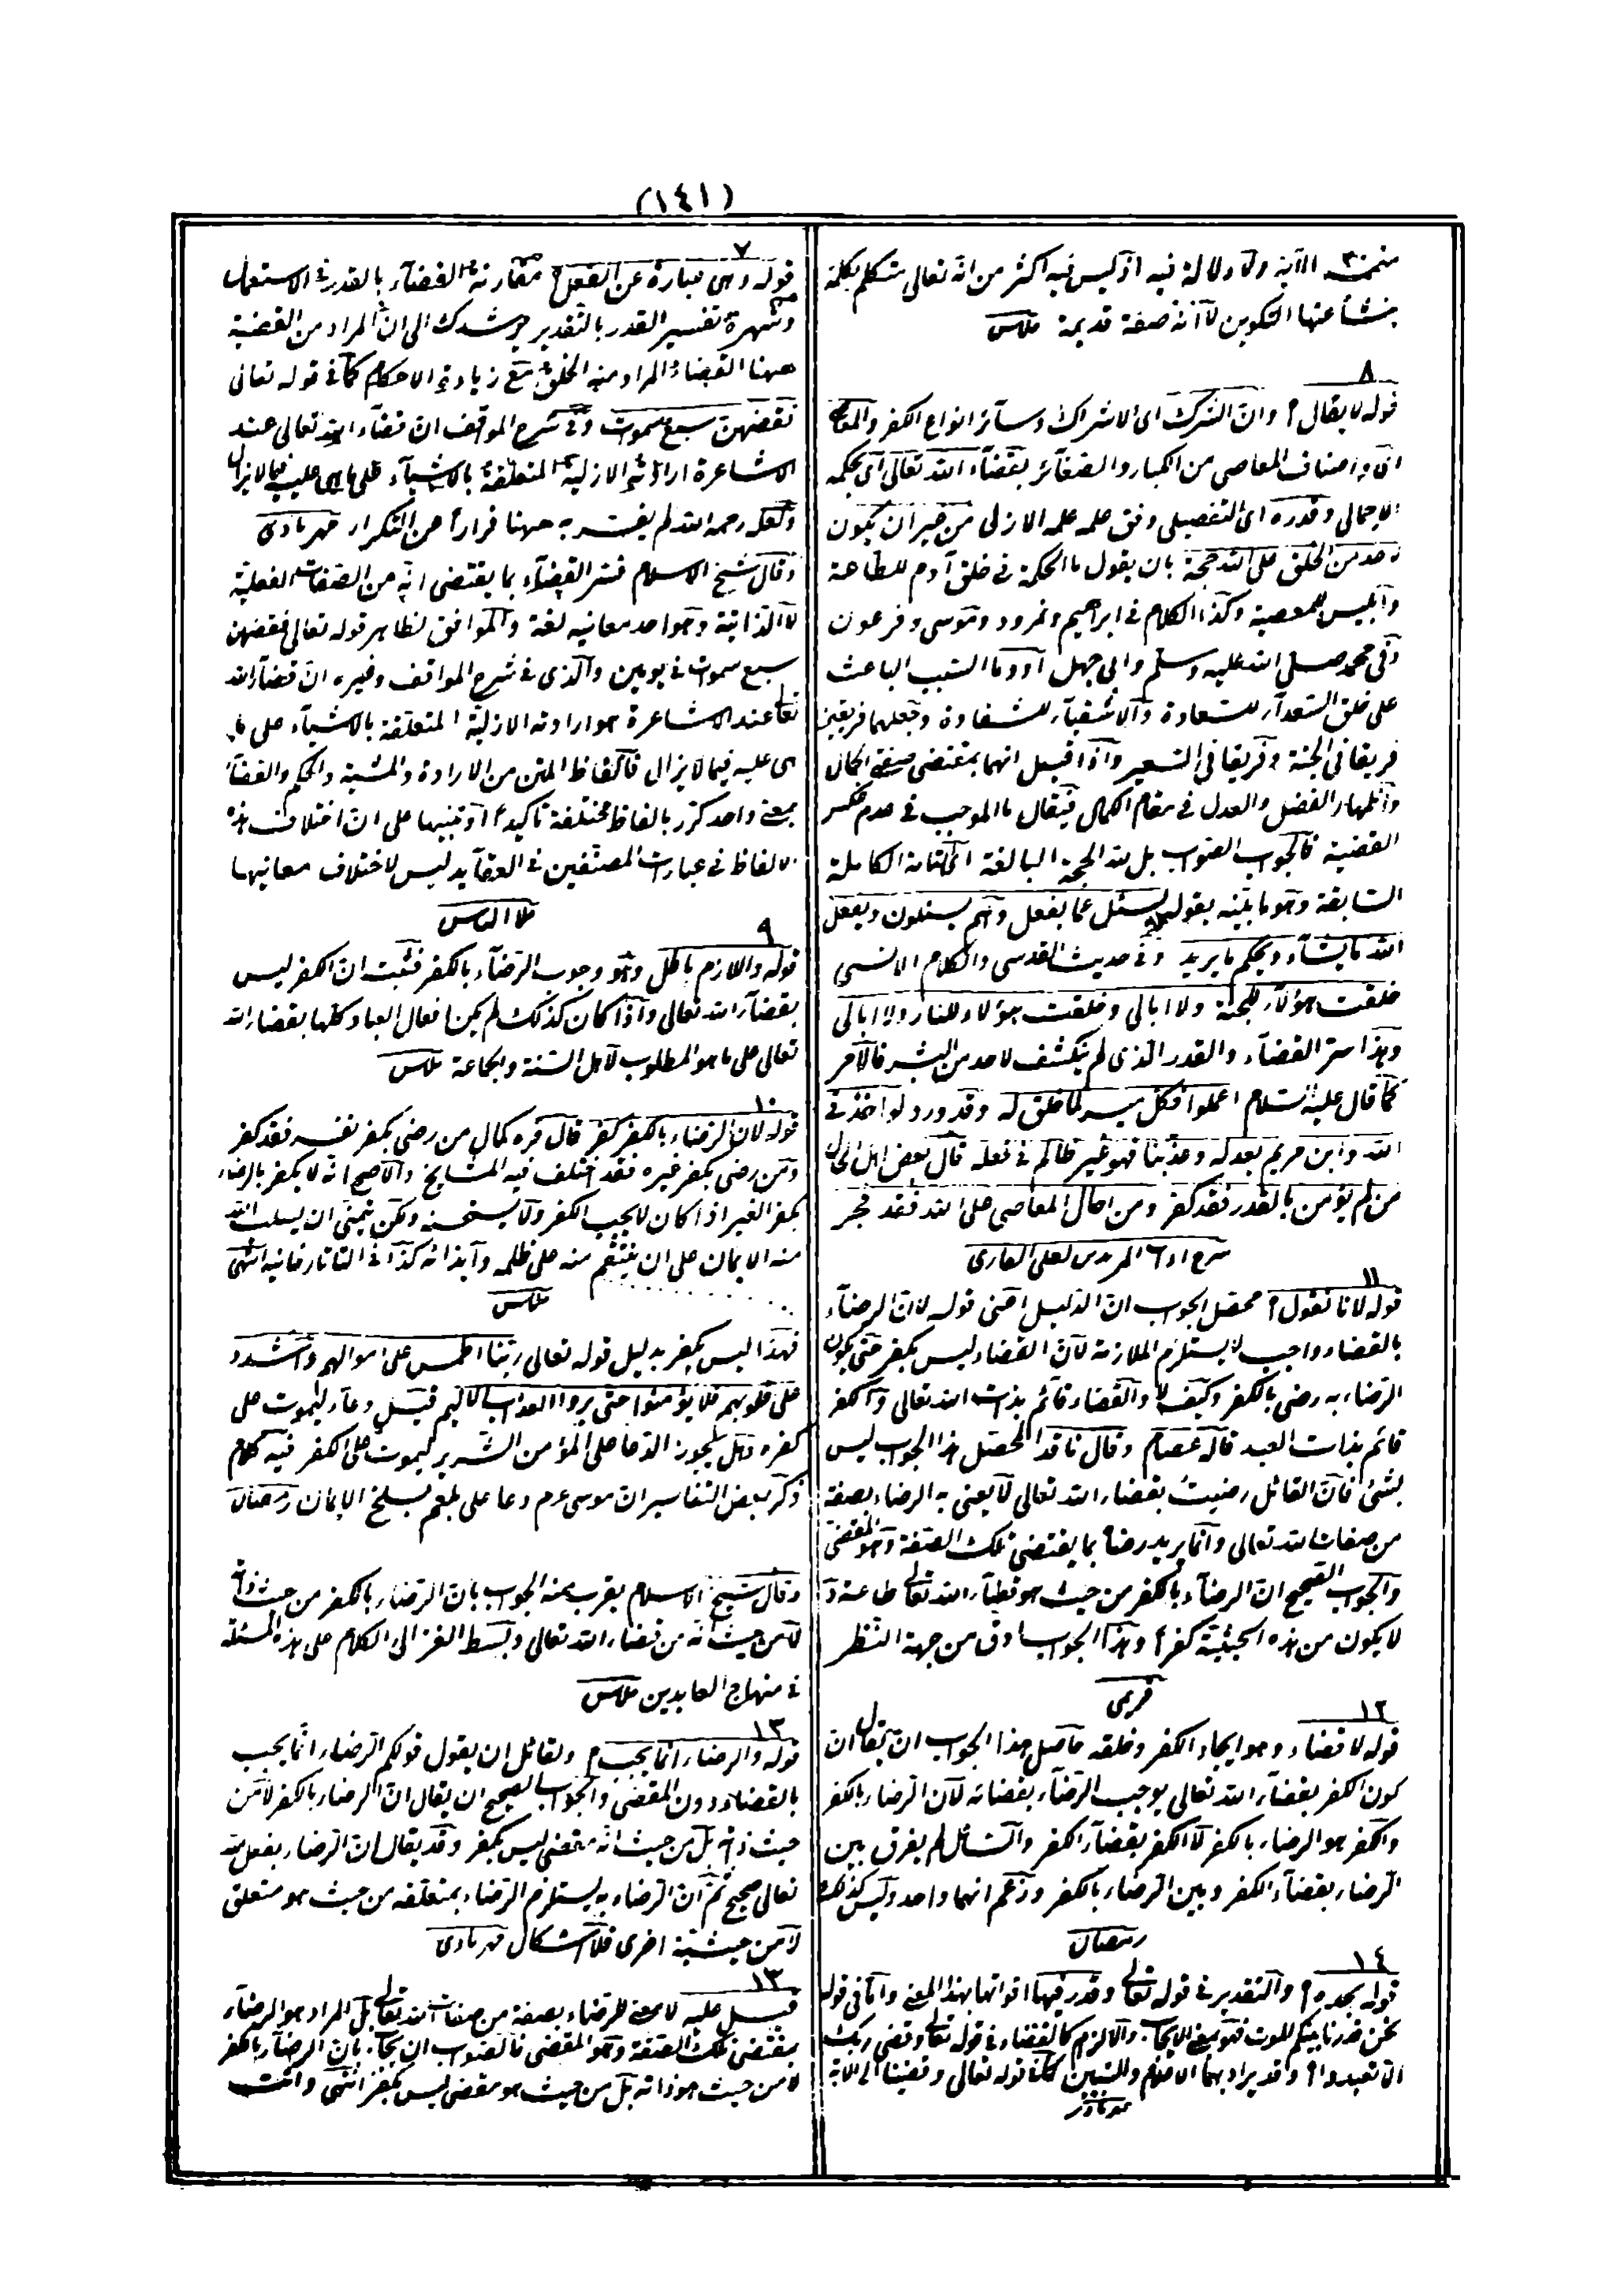 (١٤١)
الآية ولا دلالة فيه اذ ليس فيه اكثر من انه تعالى متكلم بكلمة
ينشأ عنها التكوين لا انه صفة قديمة
٨
قوله لا يقال وان الشرك اى الاشراك وسائر انواع الكفر والمعاصى
اى واصناف المعاصى من الكبائر والصغائر بقضاء الله تعالى اى بحكمه
الاجمالى وقدره اى التفصيلى وفق علمه الازلى من غير ان يكون
لاحد من الخلق على الله حجة بان يقول ما الحكمة فى خلق آدم للطاعة
وابليس للمعصية وكذا الكلام فى ابراهيم ونمرود وموسى وفرعون
وفى محمد صلى الله عليه وسلم وابى جهل او وما السبب الباعث
على خلق السعداء للسعادة والاشقياء للشقاوة وجعلهما فريقين
فريقا فى الجنة وفريقا فى السعير واذا قيل انهما بمقتضى صفتى الجمال
واظهار الفضل والعدل فى مقام الكمال فيقال ما الموجب فى عدم عكس
القضية فالجواب الصواب بل لله الحجة البالغة الكاملة
السابقة وهو ما بينه بقوله لا يسئل عما يفعل وهم يسئلون ويفعل
الله ما يشاء ويحكم ما يريد وفى حديث القدسى والكلام الانسى
خلقت هؤلاء للجنة ولا ابالى وخلقت هؤلاء للنار ولا ابالى
وهذا سر القضاء والقدر الذى لم ينكشف لاحد من البشر فالامر
كما قال عليه السلام اعملوا فكل ميسر لما خلق له وقد ورد لو اخذنى
الله وابن مريم بعدله وعذبنا فهو غير ظالم فى فعله قال بعض اهل الحال
من لم يؤمن بالقدر فقد كفر ومن احال المعاصى على الله فقد فجر
لعلى القارى
١١
قوله لانا نقول محصل الجواب ان الدليل اعنى قوله لان الرضاء
بالقضاء واجب لا يستلزم الملازمة لان القضاء ليس بكفر حتى يكون
الرضاء به رضى بالكفر وكيف لا والقضاء قائم بذات الله تعالى والكفر
قائم بذات العبد قاله عصام وقال ناقد المحصل هذا الجواب ليس
بشئ فان القائل رضيت بقضاء الله تعالى لا يعنى به الرضاء بصفة
من صفات الله تعالى وانما يريد رضاء بما يقتضى تلك الصفة وهو المقضى
والجواب الصحيح ان الرضاء بالكفر من حيث هو قضاء الله تعالى طاعة و
لا يكون من هذه الحيثية كفرا وهذا الجواب ادق من جهة النظر
قريمى
١٢
قوله لا قضاء وهو ايجاد الكفر وخلقه حاصل هذا الجواب ان يقال ان
كون الكفر بقضاء الله تعالى يوجب الرضاء بقضائه لان الرضاء بالكفر
والكفر هو الرضاء بالكفر لا الكفر بقضاء الكفر والسائل لم يفرق بين
الرضاء بقضاء الكفر وبين الرضاء بالكفر وزعم انهما واحد وليس كذلك
رمضان
١٤
قوله بحده والتقدير فى قوله تعالى وقدر فيها اقواتها بهذا المعنى واما فى قوله
نحن قدرنا بينكم الموت فهو بمعنى الايجاب والالزم كالقضاء فى قوله تعالى وقضى ربك
الا تعبدوا وقد يراد بهما الاعلام والتبيين كما فى قوله تعالى وقضينا الى الآية
٧
قوله وهى عبارة عن الفعل مقارنة القضاء بالقدر فى الاستعمال
وشهرة تفسير القدر بالتقدير يرشدك الى ان المراد من القضية
ههنا القضاء المراد منه الخلق مع زيادة الاحكام كما فى قوله تعالى
فقضهن سبع سموات وفى شرح المواقف ان قضاء الله تعالى عند
الاشاعرة ارادته الازلية المتعلقة بالاشياء على ما هى عليه فيما لا يزال
ولعله رحمه الله لم يفسر به ههنا فرارا عن التكرار
وقال شيخ الاسلام فسر القضاء بما يقتضى انه من الصفات الفعلية
لا الذاتية وهو احد معانيه لغة والموافق لظاهر قوله تعالى فقضهن
سبع سموات فى يومين والذى فى شرح المواقف وغيره ان قضاء الله
تعالى عند الاشاعرة هو ارادته الازلية المتعلقة بالاشياء على ما
هى عليه فيما لا يزال فالفاظ المتن من الارادة والمشية والحكم والقضاء
بمعنى واحد كرر بالفاظ مختلفة تأكيدا او تنبيها على ان اختلاف هذه
الالفاظ فى عبارات المصنفين فى العقايد ليس لاختلاف معانيها
ملا الياس
٩
قوله واللازم باطل وهو وجوب الرضاء بالكفر فثبت ان الكفر ليس
بقضاء الله تعالى واذا كان كذلك لم يكن افعال العباد كلها بقضاء الله
تعالى على ما هو المطلوب لاهل السنة والجماعة
١٠
قوله لان الرضاء بالكفر كفر قال قره كمال من رضى بكفر نفسه فقد كفر
ومن رضى بكفر غيره فقد اختلف فيه المشايخ والاصح انه لا يكفر بالرضاء
بكفر الغير اذا كان لا يحب الكفر ولا يستحسنه ولكن يتمنى ان يسلب الله
منه الايمان على ان ينتقم منه على ظلمه وايذائه كذا فى التاتارخانية انتهى
فهذا ليس بكفر بدليل قوله تعالى ربنا اطمس على اموالهم واشدد
على قلوبهم فلا يؤمنوا حتى يروا العذاب الاليم قيل دعاء ليموت على
كفره وهل يجوز الدعا على المؤمن الشرير ليموت على الكفر فيه كلام
ذكر بعض التفاسير ان موسى عم دعا على بلعم بسلخ الايمان رمضان
وقال شيخ الاسلام يقرب منه الجواب بان الرضاء بالكفر من حيث ذاته
لا من حيث انه من قضاء الله تعالى وبسط الغزالى الكلام على هذه المسئلة
فى منهاج العابدين
١٣
قوله والرضاء انما يجب ولقائل ان يقول قولكم الرضاء انما يجب
بالقضاء دون المقضى والجواب الصحيح ان يقال ان الرضاء بالكفر لا من
حيث ذاته بل من حيث انه مقضى ليس بكفر وقد يقال ان الرضاء بفعل الله
تعالى صحيح ثم ان الرضاء به يستلزم الرضاء بمتعلقه من حيث هو متعلق
لا من حيثية اخرى فلا اشكال
١٣
قيل عليه لا معنى للرضاء بصفة من صفات الله تعالى بل المراد هو الرضاء
بمقتضى تلك الصفة وهو المقضى فالصواب ان يجاب بان الرضاء بالكفر
لا من حيث هو ذاته بل من حيث هو مقضى ليس بكفر انتهى وانت